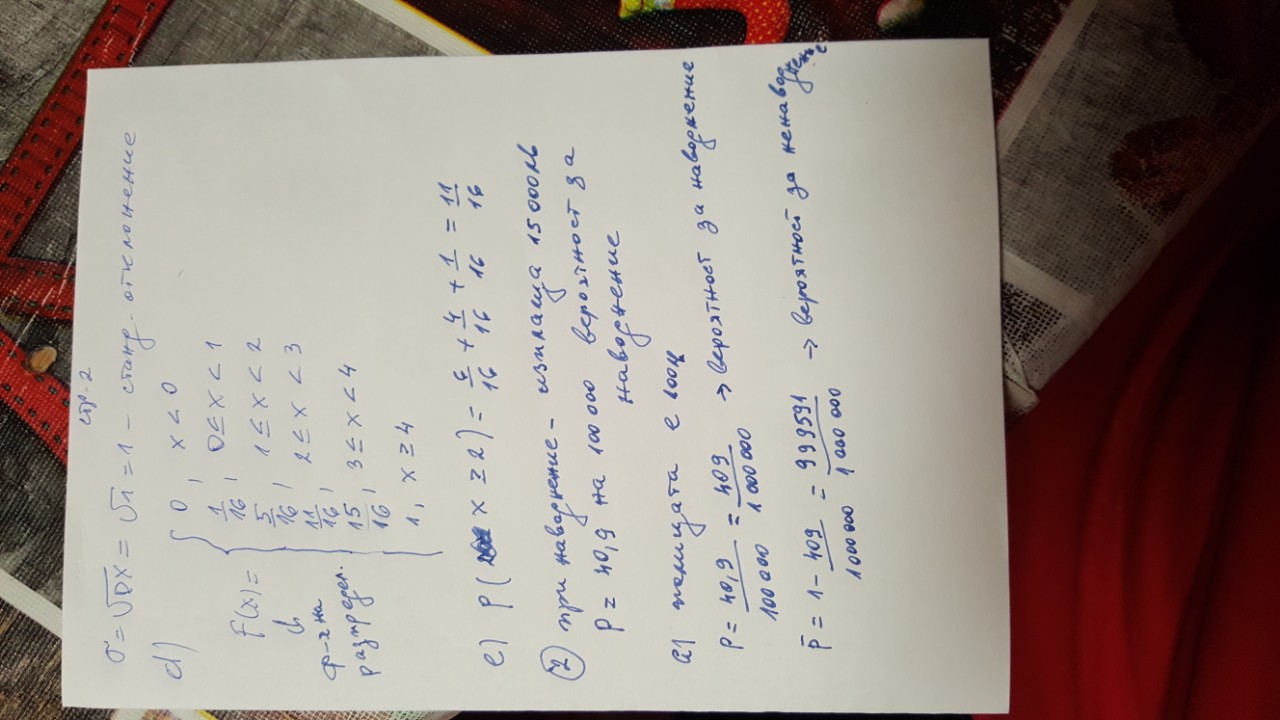 стр. 2
σ = √DX = √1 = 1 – станд. отклонение
d)
F(x) =
ф-я на
разпредел.
0, x < 0
1/16, 0 ≤ x < 1
5/16, 1 ≤ x < 2
11/16, 2 ≤ x < 3
15/16, 3 ≤ x < 4
1, x ≥ 4
e) P( x ≥ 2) = 6/16 + 4/16 + 1/16 = 11/16
② при наводнение – изплаща 15 000 лв
P = 40,9 на 100 000 вероятност за
наводнение
a) полицата е 100
P = 40,9/100 000 = 409/1 000 000 → вероятност за наводнение
P̄ = 1 - 409/1 000 000 = 999591/1 000 000 → вероятност за ненаводнение